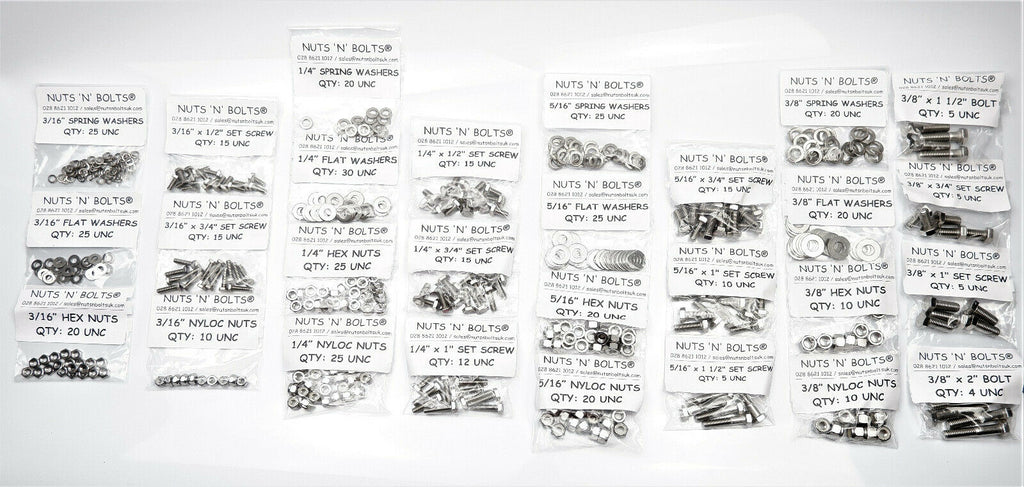 NUTS 'N' BOLTS®
028 8621 1012 / sales@nutsnboltsuk.com
3/16" SPRING WASHERS
QTY: 25 UNC
NUTS 'N' BOLTS®
028 8621 1012 / sales@nutsnboltsuk.com
3/16" FLAT WASHERS
QTY: 25 UNC
NUTS 'N' BOLTS®
028 8621 1012 / sales@nutsnboltsuk.com
3/16" HEX NUTS
QTY: 20 UNC
NUTS 'N' BOLTS®
028 8621 1012 / sales@nutsnboltsuk.com
3/16" x 1/2" SET SCREW
QTY: 15 UNC
NUTS 'N' BOLTS®
028 8621 1012 / sales@nutsnboltsuk.com
3/16" x 3/4" SET SCREW
QTY: 15 UNC
NUTS 'N' BOLTS®
028 8621 1012 / sales@nutsnboltsuk.com
3/16" NYLOC NUTS
QTY: 10 UNC
NUTS 'N' BOLTS®
028 8621 1012 / sales@nutsnboltsuk.com
1/4" SPRING WASHERS
QTY: 20 UNC
NUTS 'N' BOLTS®
028 8621 1012 / sales@nutsnboltsuk.com
1/4" FLAT WASHERS
QTY: 30 UNC
NUTS 'N' BOLTS®
028 8621 1012 / sales@nutsnboltsuk.com
1/4" HEX NUTS
QTY: 25 UNC
NUTS 'N' BOLTS®
028 8621 1012 / sales@nutsnboltsuk.com
1/4" NYLOC NUTS
QTY: 25 UNC
NUTS 'N' BOLTS®
028 8621 1012 / sales@nutsnboltsuk.com
1/4" x 1/2" SET SCREW
QTY: 15 UNC
NUTS 'N' BOLTS®
028 8621 1012 / sales@nutsnboltsuk.com
1/4" x 3/4" SET SCREW
QTY: 15 UNC
NUTS 'N' BOLTS®
028 8621 1012 / sales@nutsnboltsuk.com
1/4" x 1" SET SCREW
QTY: 12 UNC
NUTS 'N' BOLTS®
028 8621 1012 / sales@nutsnboltsuk.com
5/16" SPRING WASHERS
QTY: 25 UNC
NUTS 'N' BOLTS®
028 8621 1012 / sales@nutsnboltsuk.com
5/16" FLAT WASHERS
QTY: 25 UNC
NUTS 'N' BOLTS®
028 8621 1012 / sales@nutsnboltsuk.com
5/16" HEX NUTS
QTY: 20 UNC
NUTS 'N' BOLTS®
028 8621 1012 / sales@nutsnboltsuk.com
5/16" NYLOC NUTS
QTY: 20 UNC
NUTS 'N' BOLTS®
028 8621 1012 / sales@nutsnboltsuk.com
5/16" x 3/4" SET SCREW
QTY: 15 UNC
NUTS 'N' BOLTS®
028 8621 1012 / sales@nutsnboltsuk.com
5/16" x 1" SET SCREW
QTY: 10 UNC
NUTS 'N' BOLTS®
028 8621 1012 / sales@nutsnboltsuk.com
5/16" x 1 1/2" SET SCREW
QTY: 5 UNC
NUTS 'N' BOLTS®
028 8621 1012 / sales@nutsnboltsuk.com
3/8" SPRING WASHERS
QTY: 20 UNC
NUTS 'N' BOLTS®
028 8621 1012 / sales@nutsnboltsuk.com
3/8" FLAT WASHERS
QTY: 20 UNC
NUTS 'N' BOLTS®
028 8621 1012 / sales@nutsnboltsuk.com
3/8" HEX NUTS
QTY: 10 UNC
NUTS 'N' BOLTS®
028 8621 1012 / sales@nutsnboltsuk.com
3/8" NYLOC NUTS
QTY: 10 UNC
NUTS 'N' BOLTS®
028 8621 1012 / sales@nutsnboltsuk.com
3/8" x 1 1/2" BOLT
QTY: 5 UNC
NUTS 'N' BOLTS®
028 8621 1012 / sales@nutsnboltsuk.com
3/8" x 3/4" SET SCREW
QTY: 5 UNC
NUTS 'N' BOLTS®
028 8621 1012 / sales@nutsnboltsuk.com
3/8" x 1" SET SCREW
QTY: 5 UNC
NUTS 'N' BOLTS®
028 8621 1012 / sales@nutsnboltsuk.com
3/8" x 2" BOLT
QTY: 4 UNC